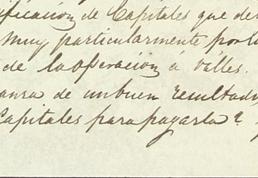 ificacion de Capitales que de
muy particularmente por l
de la operacion a Valles.
anza de un buen resultado
Capitales para pagarla?